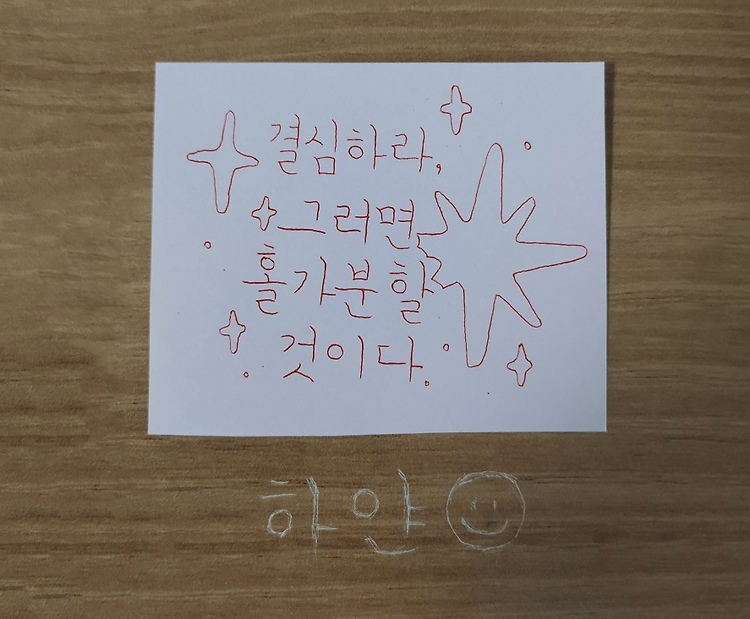 결심하라,
그러면
홀가분할
것이다.
하얀